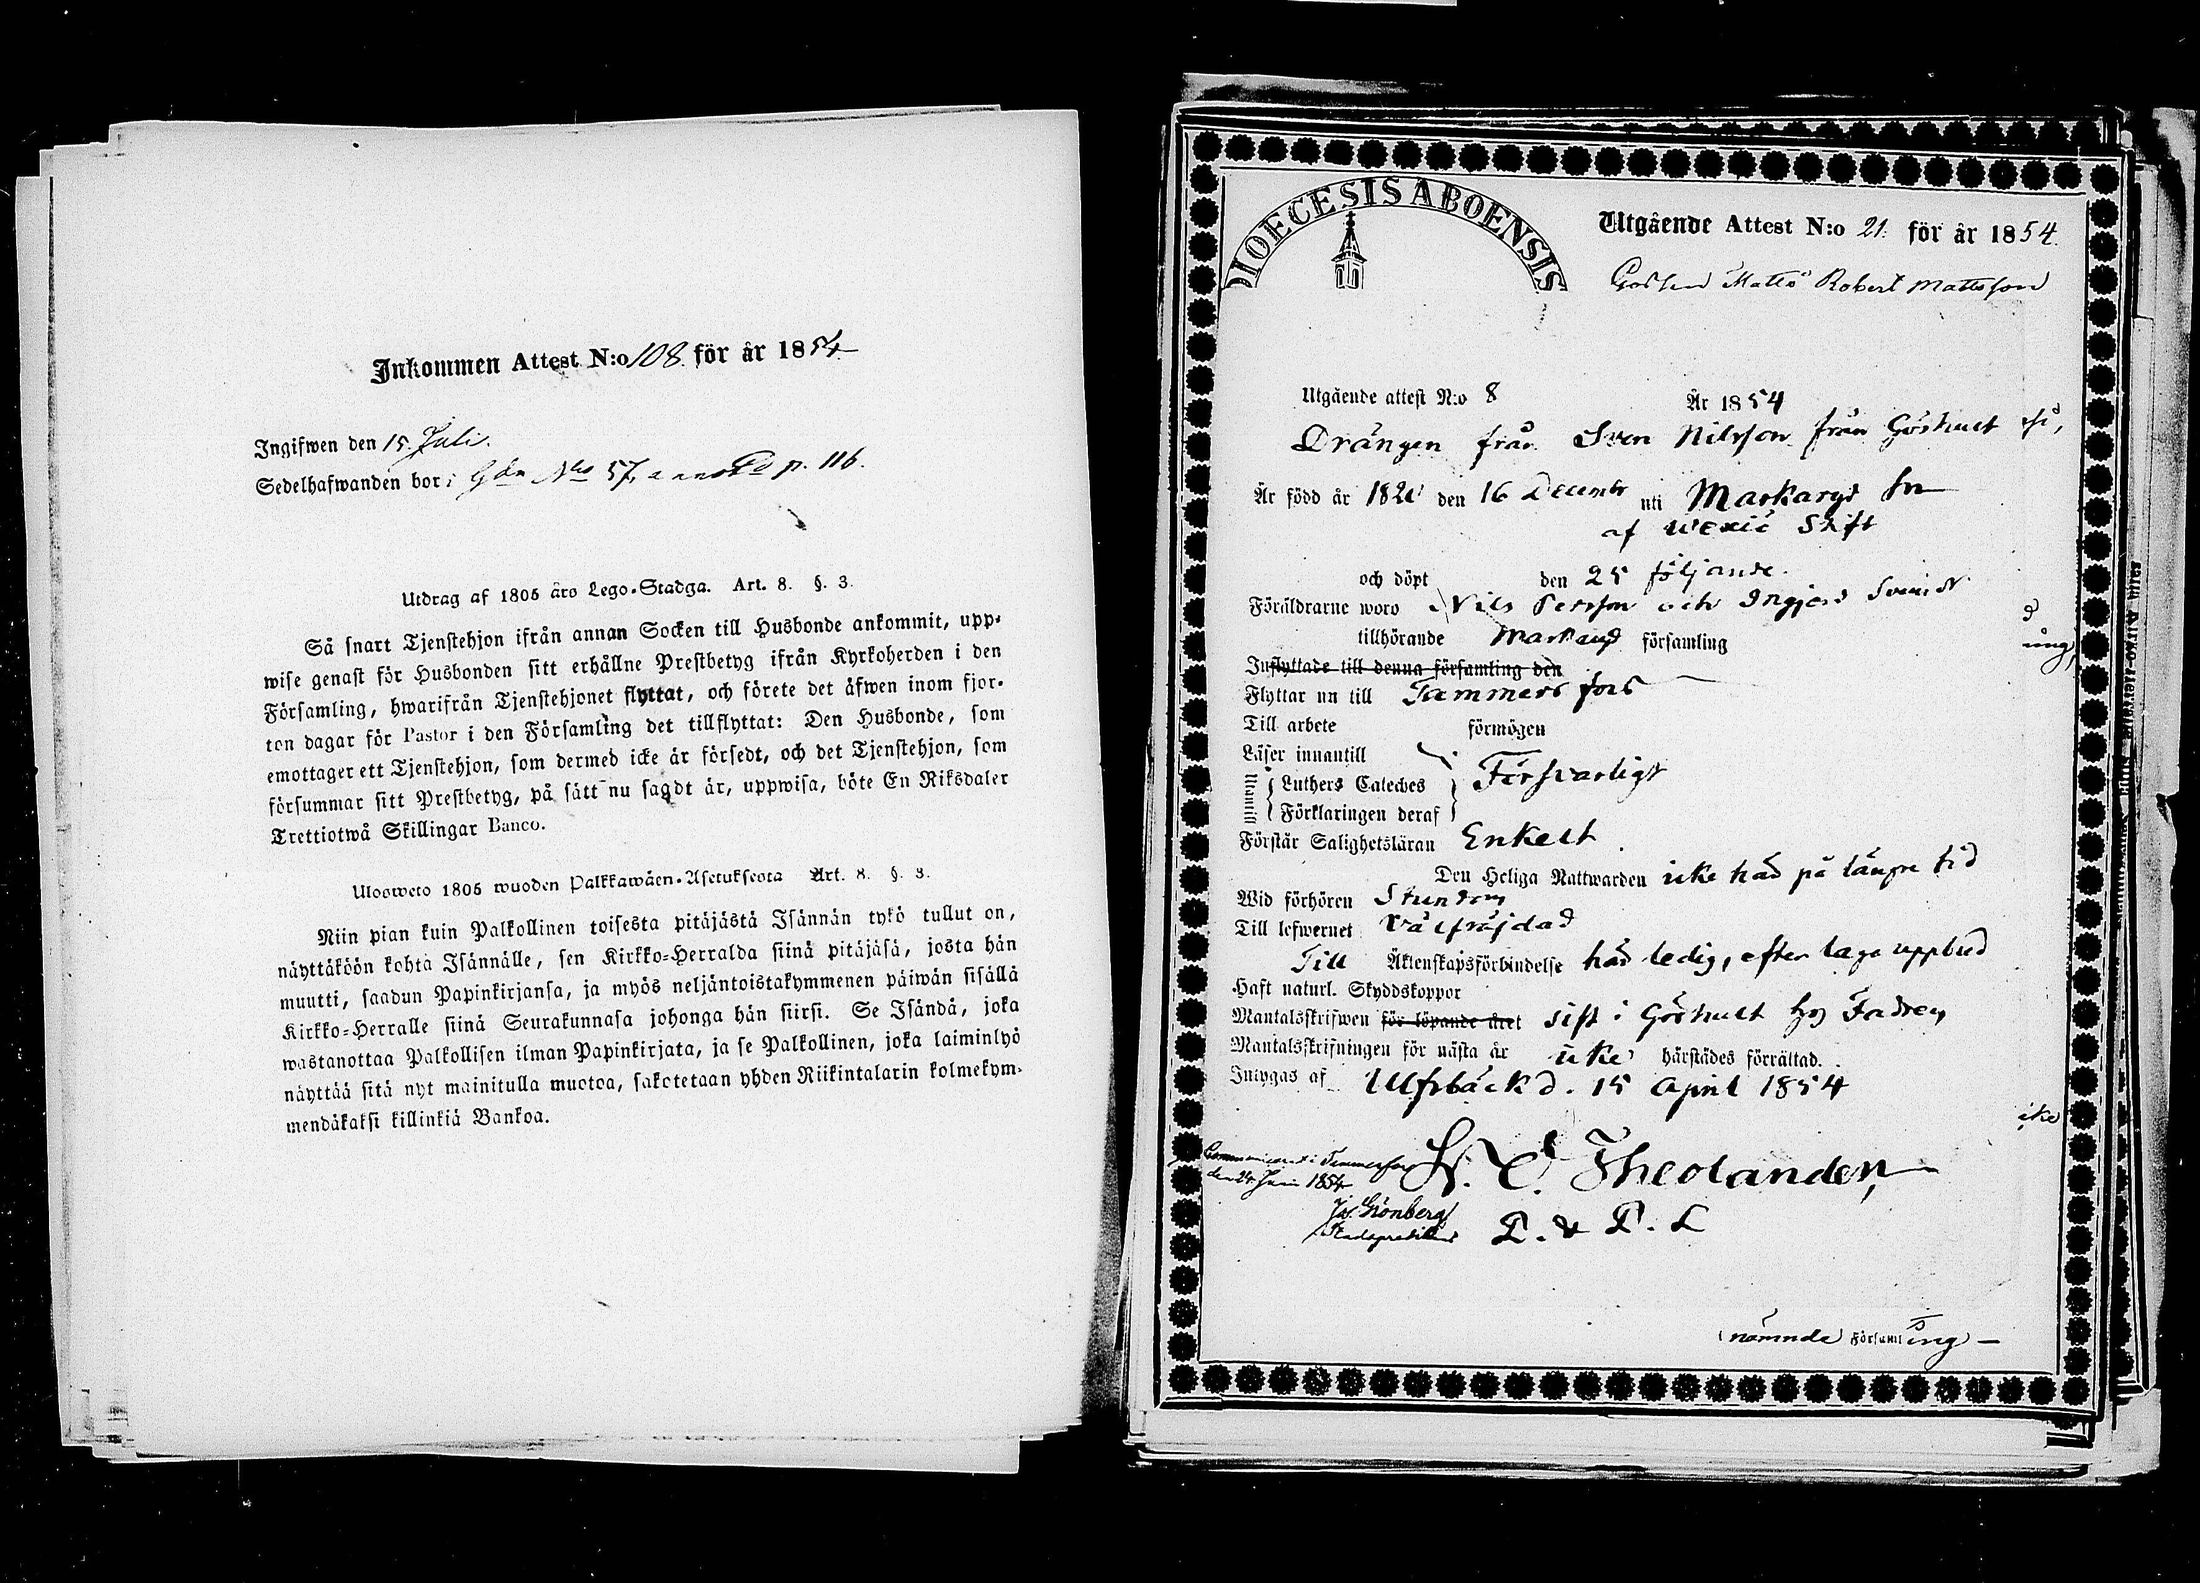 Inkommen Attest N:o 108 för år 1854
Ingifwen den 15 Juli.
Sedelhafwanden bor i Gdn No 57, p. 116.
Utdrag af 1805 års Lego-Stadga. Art. 8. §. 3.
Så snart Tjenstehjon ifrån annan Socken till Husbonde ankommit, upp-
wise genast för Husbonden sitt erhållne Prestbetyg ifrån Kyrkoherden i den
Församling, hwarifrån Tjenstehjonet flyttat, och förete det äfwen inom fjor-
ton dagar för Pastor i den Församling det tillflyttat: Den Husbonde, som
emottager ett Tjenstehjon, som dermed icke är försedt, och det Tjenstehjon, som
försummar sitt Prestbetyg, på sätt nu sagdt är, uppwisa, böte En Riksdaler
Trettiotwå Skillingar Banco.
Ulosweto 1805 wuoden Palkkawäen-Asetuksesta Art. 8. §. 3.
Niin pian kuin Palkollinen toisesta pitäjästä Isännän tykö tullut on,
näyttäköön kohta Isännälle, sen Kirkko-Herralda siinä pitäjäsä, josta hän
muutti, saadun Papinkirjansa, ja myös neljäntoistakymmenen päiwän sisällä
Kirkko-Herralle siinä Seurakunnasa johonga hän siirsi. Se Isändä, joka
wastanottaa Palkollisen ilman Papinkirjata, ja se Palkollinen, joka laiminlyö
näyttää sitä nyt mainitulla muotoa, sakotetaan yhden Riikintalarin kolmekym-
mendäkaksi killinkiä Bankoa.
DIOECESIS ABOENSIS
Utgående Attest N:o 21. för år 1854.
Matts Robert Mattsson
Utgående attest N:o 8 År 1854
Drängen från Sven Nilsson från Göshult
Är född år 182 den 16 Decembr uti Markaryd
af Wexiö Stift
och döpt den 25 följande.
Föräldrarne woro Nils Persson och Ingjerd Svensdr
tillhörande Markaryd församling
Inflyttade till denna församling den
Flyttar nu till Tammerfors
Till arbete förmögen
Läser innantill
Utantill Luthers Cateches Försvarligt
Förklaringen deraf
Förstår Salighetsläran Enkelt
Den Heliga Nattwarden icke had på längre tid
Wid förhören Stundom
Till lefwernet Välfräjdad
Till Äktenskapsförbindelse här ledig, efter laga uppbud
Haft naturl. Skyddskoppor
Mantalsskrifwen för löpande året sist i Göshult hos Fadren
Mantalsskrifningen för nästa år icke härstädes förrättad.
Intygas af Ulfsbäck d. 15 April 1854
Theolander,
P. & P. L
Communicerat i Tammerfors
den 24 Juni 1854
Js. Grönberg
Stadspredikant
nämnde Församling